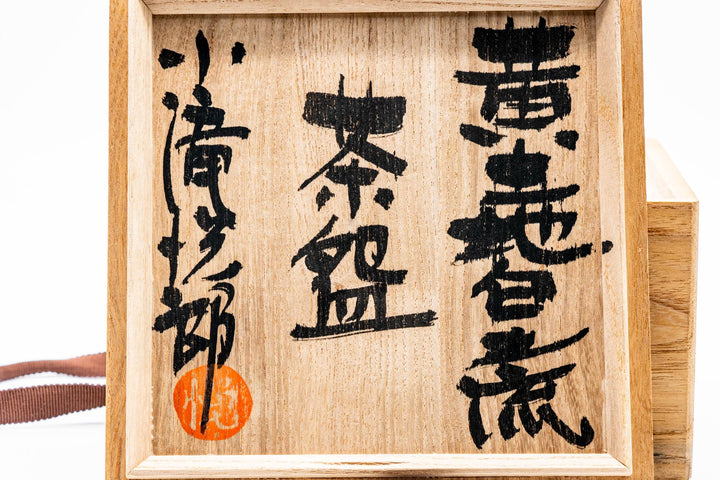 黄地 流
茶盌
小滝悦郎